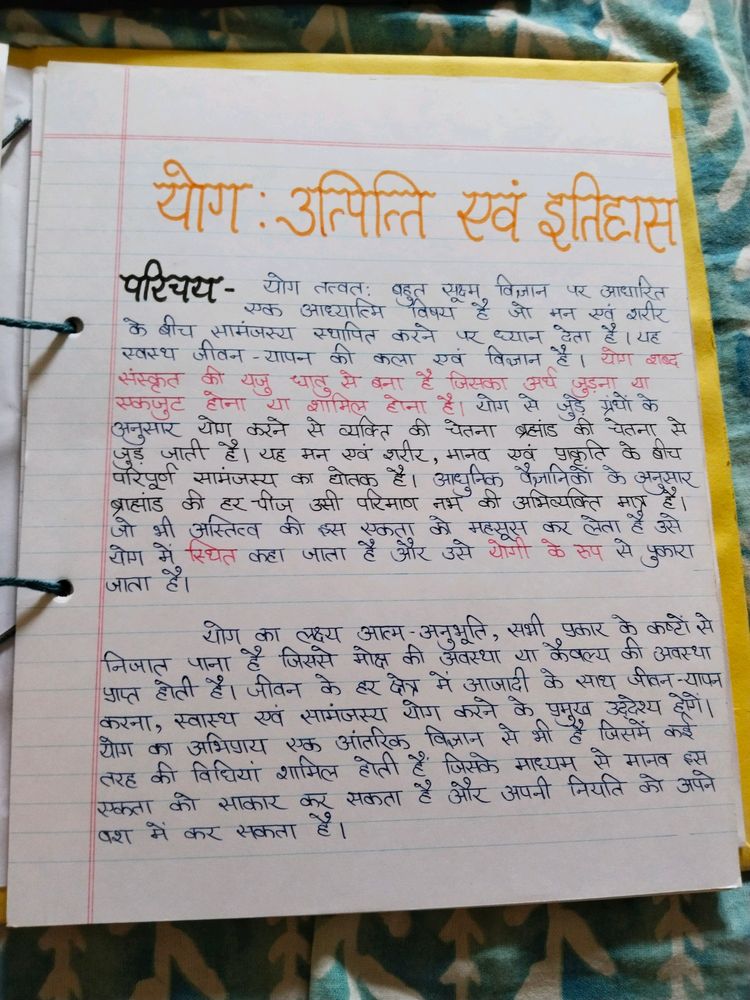 योग : उत्पित्ति एवं इतिहास
परिचय - योग तत्वत: बहुत सूक्ष्म विज्ञान पर आधारित
एक आध्यात्मि विषय है जो मन एवं शरीर
के बीच सामंजस्य स्थापित करने पर ध्यान देता है। यह
स्वस्थ जीवन - यापन की कला एवं विज्ञान है। योग शब्द
संस्कृत की यजु धातु से बना है जिसका अर्थ जुड़ना या
एकजुट होना या शामिल होना है। योग से जुड़े ग्रंथों के
अनुसार योग करने से व्यक्ति की चेतना ब्रह्मांड की चेतना से
जुड़ जाती है। यह मन एवं शरीर, मानव एवं प्राकृति के बीच
परिपूर्ण सामंजस्य का द्योतक है। आधुनिक वैज्ञानिकों के अनुसार
ब्राह्मांड की हर चीज उसी परिमाण नभ की अभिव्यक्ति मात्र है।
जो भी अस्तित्व की इस एकता को महसूस कर लेता है उसे
योग में स्थित कहा जाता है और उसे योगी के रूप से पुकारा
जाता है।
योग का लक्ष्य आत्म - अनुभूति, सभी प्रकार के कष्टों से
निजात पाना है जिससे मोक्ष की अवस्था या कैवल्य की अवस्था
प्राप्त होती है। जीवन के हर क्षेत्र में आजादी के साथ जीवन - यापन
करना, स्वास्थ एवं सामंजस्य योग करने के प्रमुख उद्देश्य होंगे।
योग का अभिप्राय एक आंतरिक विज्ञान से भी है जिसमें कई
तरह की विधियां शामिल होती हैं जिसके माध्यम से मानव इस
एकता को साकार कर सकता है और अपनी नियति को अपने
वश में कर सकता है।